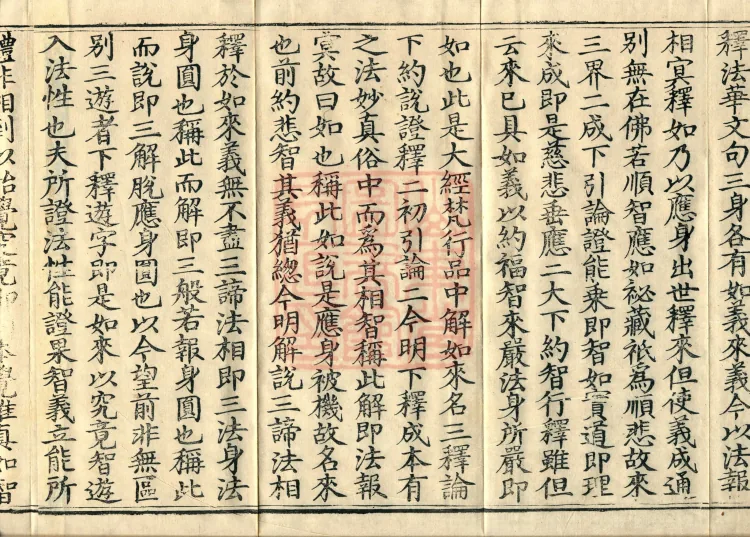 釋法華文句三身各有如義來義今以法報
相冥釋如乃以應身出世釋來但使義成通
別無在佛若順智應如祕藏祇為順悲故來
三界二成下引論證能乘即智如實道即理
來成即是慈悲垂應二大下約智行釋雖但
云來已具如義以約福智來嚴法身所嚴即
如也此是大經梵行品中解如來名三釋論
下約說證釋二初引論二今明下釋成本有
之法妙真俗中而爲其相智稱此解即法報
冥故曰如也稱此如說是應身被機故名來
也前約悲智其義猶總今明解說三諦法相
釋於如來義無不盡三諦法相即三法身法
身圓也稱此而解即三般若報身圓也稱此
而說即三解脫應身圓也以今望前非無區
別三遊者下釋遊字即是如來以究竟智遊
入法性也夫所證法性能證果智義立能所
體非相到以始覺究竟即
覺惟真如智